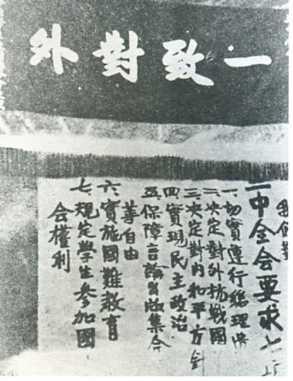 一致對外
中全会要求
一、切實遵行總理
二、決定對外抗戰國
三、決定對內和平方針
四、實現民主政治
五、保障言論出版集会
等自由
六、實施國難教育
七、規定學生參加國
会權利